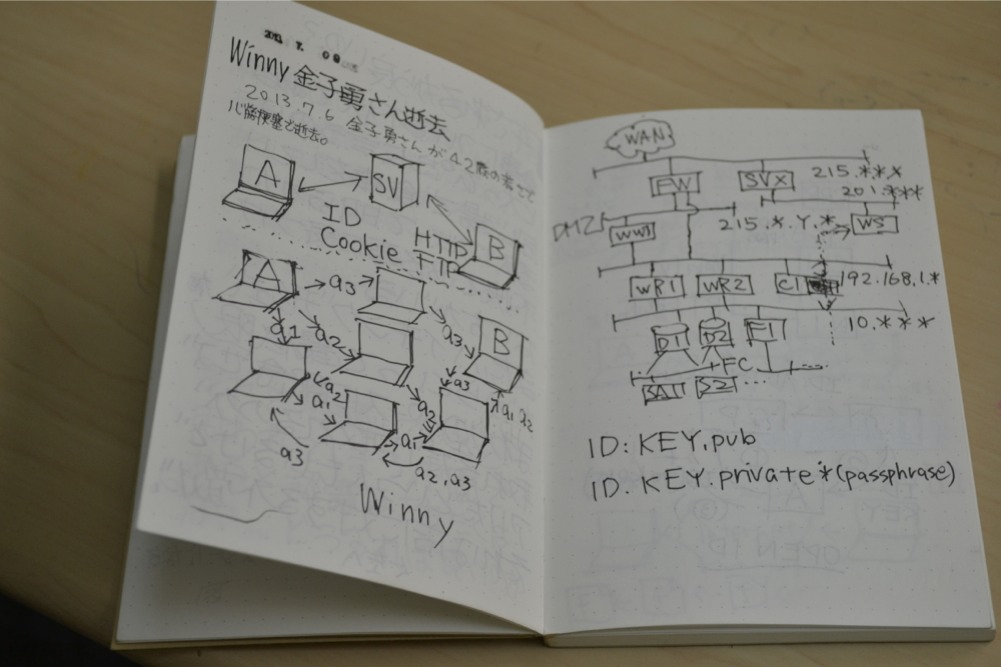 Winny 金子勇さん逝去
2013.7.6 金子勇さんが42歳の若さで
心筋梗塞で逝去。
A
SV
ID
Cookie
HTTP
FTP
B
A
a3
a1
a2
a3
B
a2
a1
a3
a2
a1
a3
a1 a2
a2,a3
Winny
WAN
FW
SVX
215.*.*.*
201.***
DMZ
WW1
215.*.Y.*
WS
WR1
WR2
C1
192.168.1.*
10.***
D1
D2
F1
FC
SA1
S2
...
ID: KEY.pub
ID. KEY.private*(passphrase)